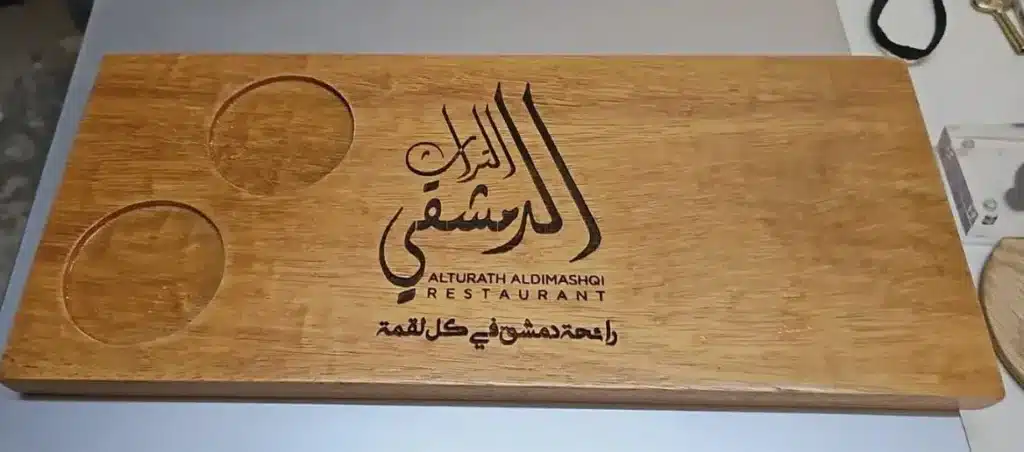 التراث
الدمشقي
ALTURATH ALDIMASHQI
RESTAURANT
رائحة دمشق في كل لقمة